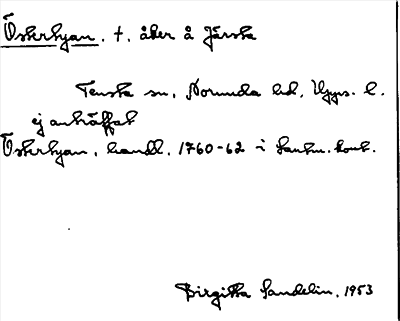 Österbyan. t. åker å Järsta
Tensta sn, Norunda hd, Upps. l.
ej anträffat
Österbyan, handl. 1760-62 i Lantm. kont.
Birgitta Sandelin. 1953